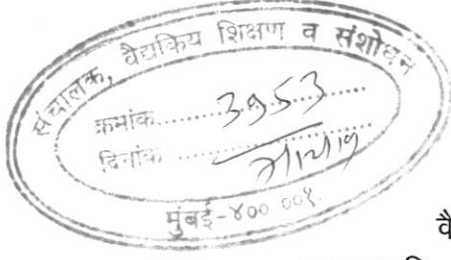 संचालक, वैद्यकिय शिक्षण व संशोधन
क्रमांक..........3953..........
दिनांक ..........
मुंबई-४०० ००१.
वै